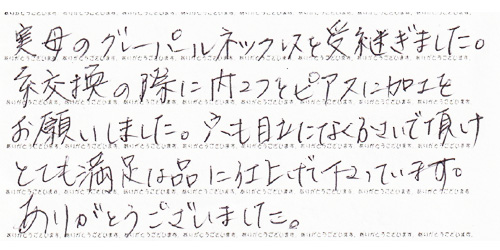 実母のグレーパールネックレスを受継ぎました。
糸交換の際に内2つをピアスに加工を
お願いしました。穴も目立たなくふさいで頂け
とても満足な品に仕上げて下さっています。
ありがとうございました。